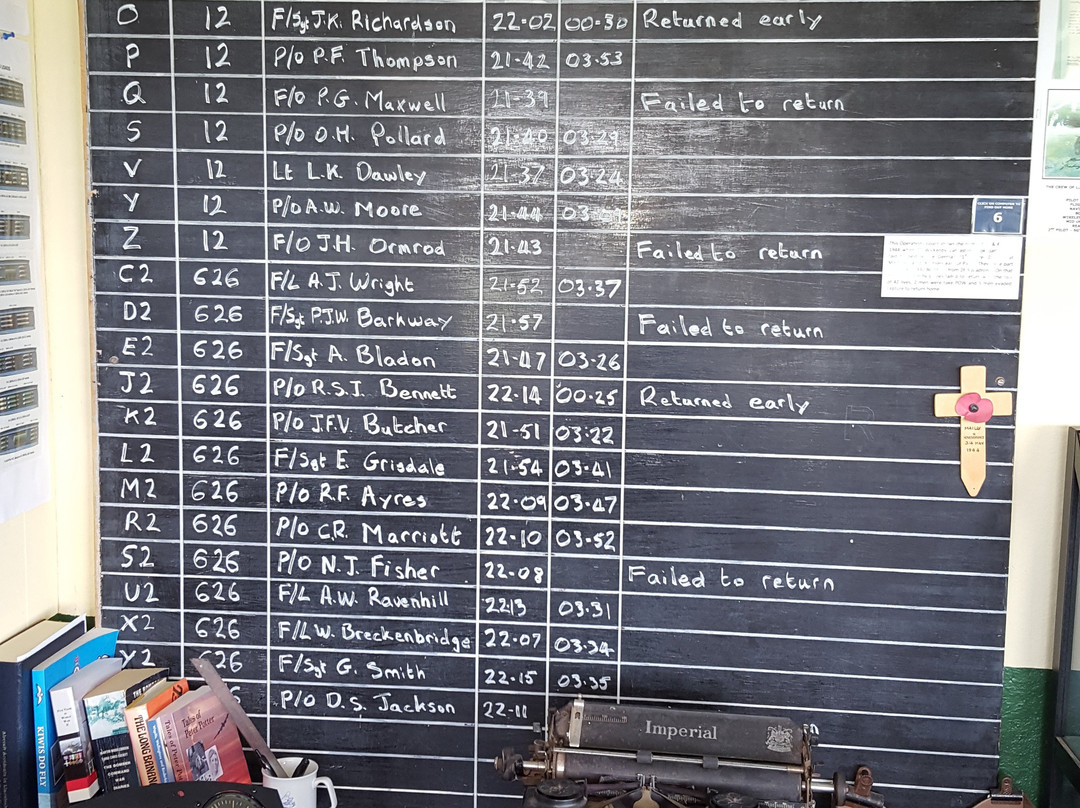 O 12 F/Sgt J.K. Richardson 22-02 00-30 Returned early
P 12 P/O P.F. Thompson 21-42 03-53
Q 12 F/O P.G. Maxwell 21-39 Failed to return
S 12 P/O O.H. Pollard 21-40 03-29
V 12 Lt L.K. Dawley 21-37 03-24
Y 12 P/O A.W. Moore 21-44
Z 12 F/O J.H. Ormrod 21-43 Failed to return
6
C2 626 F/L A.J. Wright 21-52 03-37
D2 626 F/Sgt P.J.W. Barkway 21-57 Failed to return
E2 626 F/Sgt A. Bladon 21-47 03-26
J2 626 P/O R.S.I. Bennett 22-14 00-25 Returned early
K2 626 P/O J.F.V. Butcher 21-51 03-22
L2 626 F/Sgt E. Grisdale 21-54 03-41
M2 626 P/O R.F. Ayres 22-09 03-47
R2 626 P/O C.R. Marriott 22-10 03-52
S2 626 P/O N.J. Fisher 22-08 Failed to return
U2 626 F/L A.W. Ravenhill 2213 03-31
X2 626 F/L W. Breckenbridge 22-07 03-34
Y2 626 F/Sgt G. Smith 22-15 03-35
P/O D.S. Jackson 22-11
Imperial
KIWIS DO FLY
THE LONG
Tales of Peter Potter
THE BOMBER COMMAND WAR DIARIES